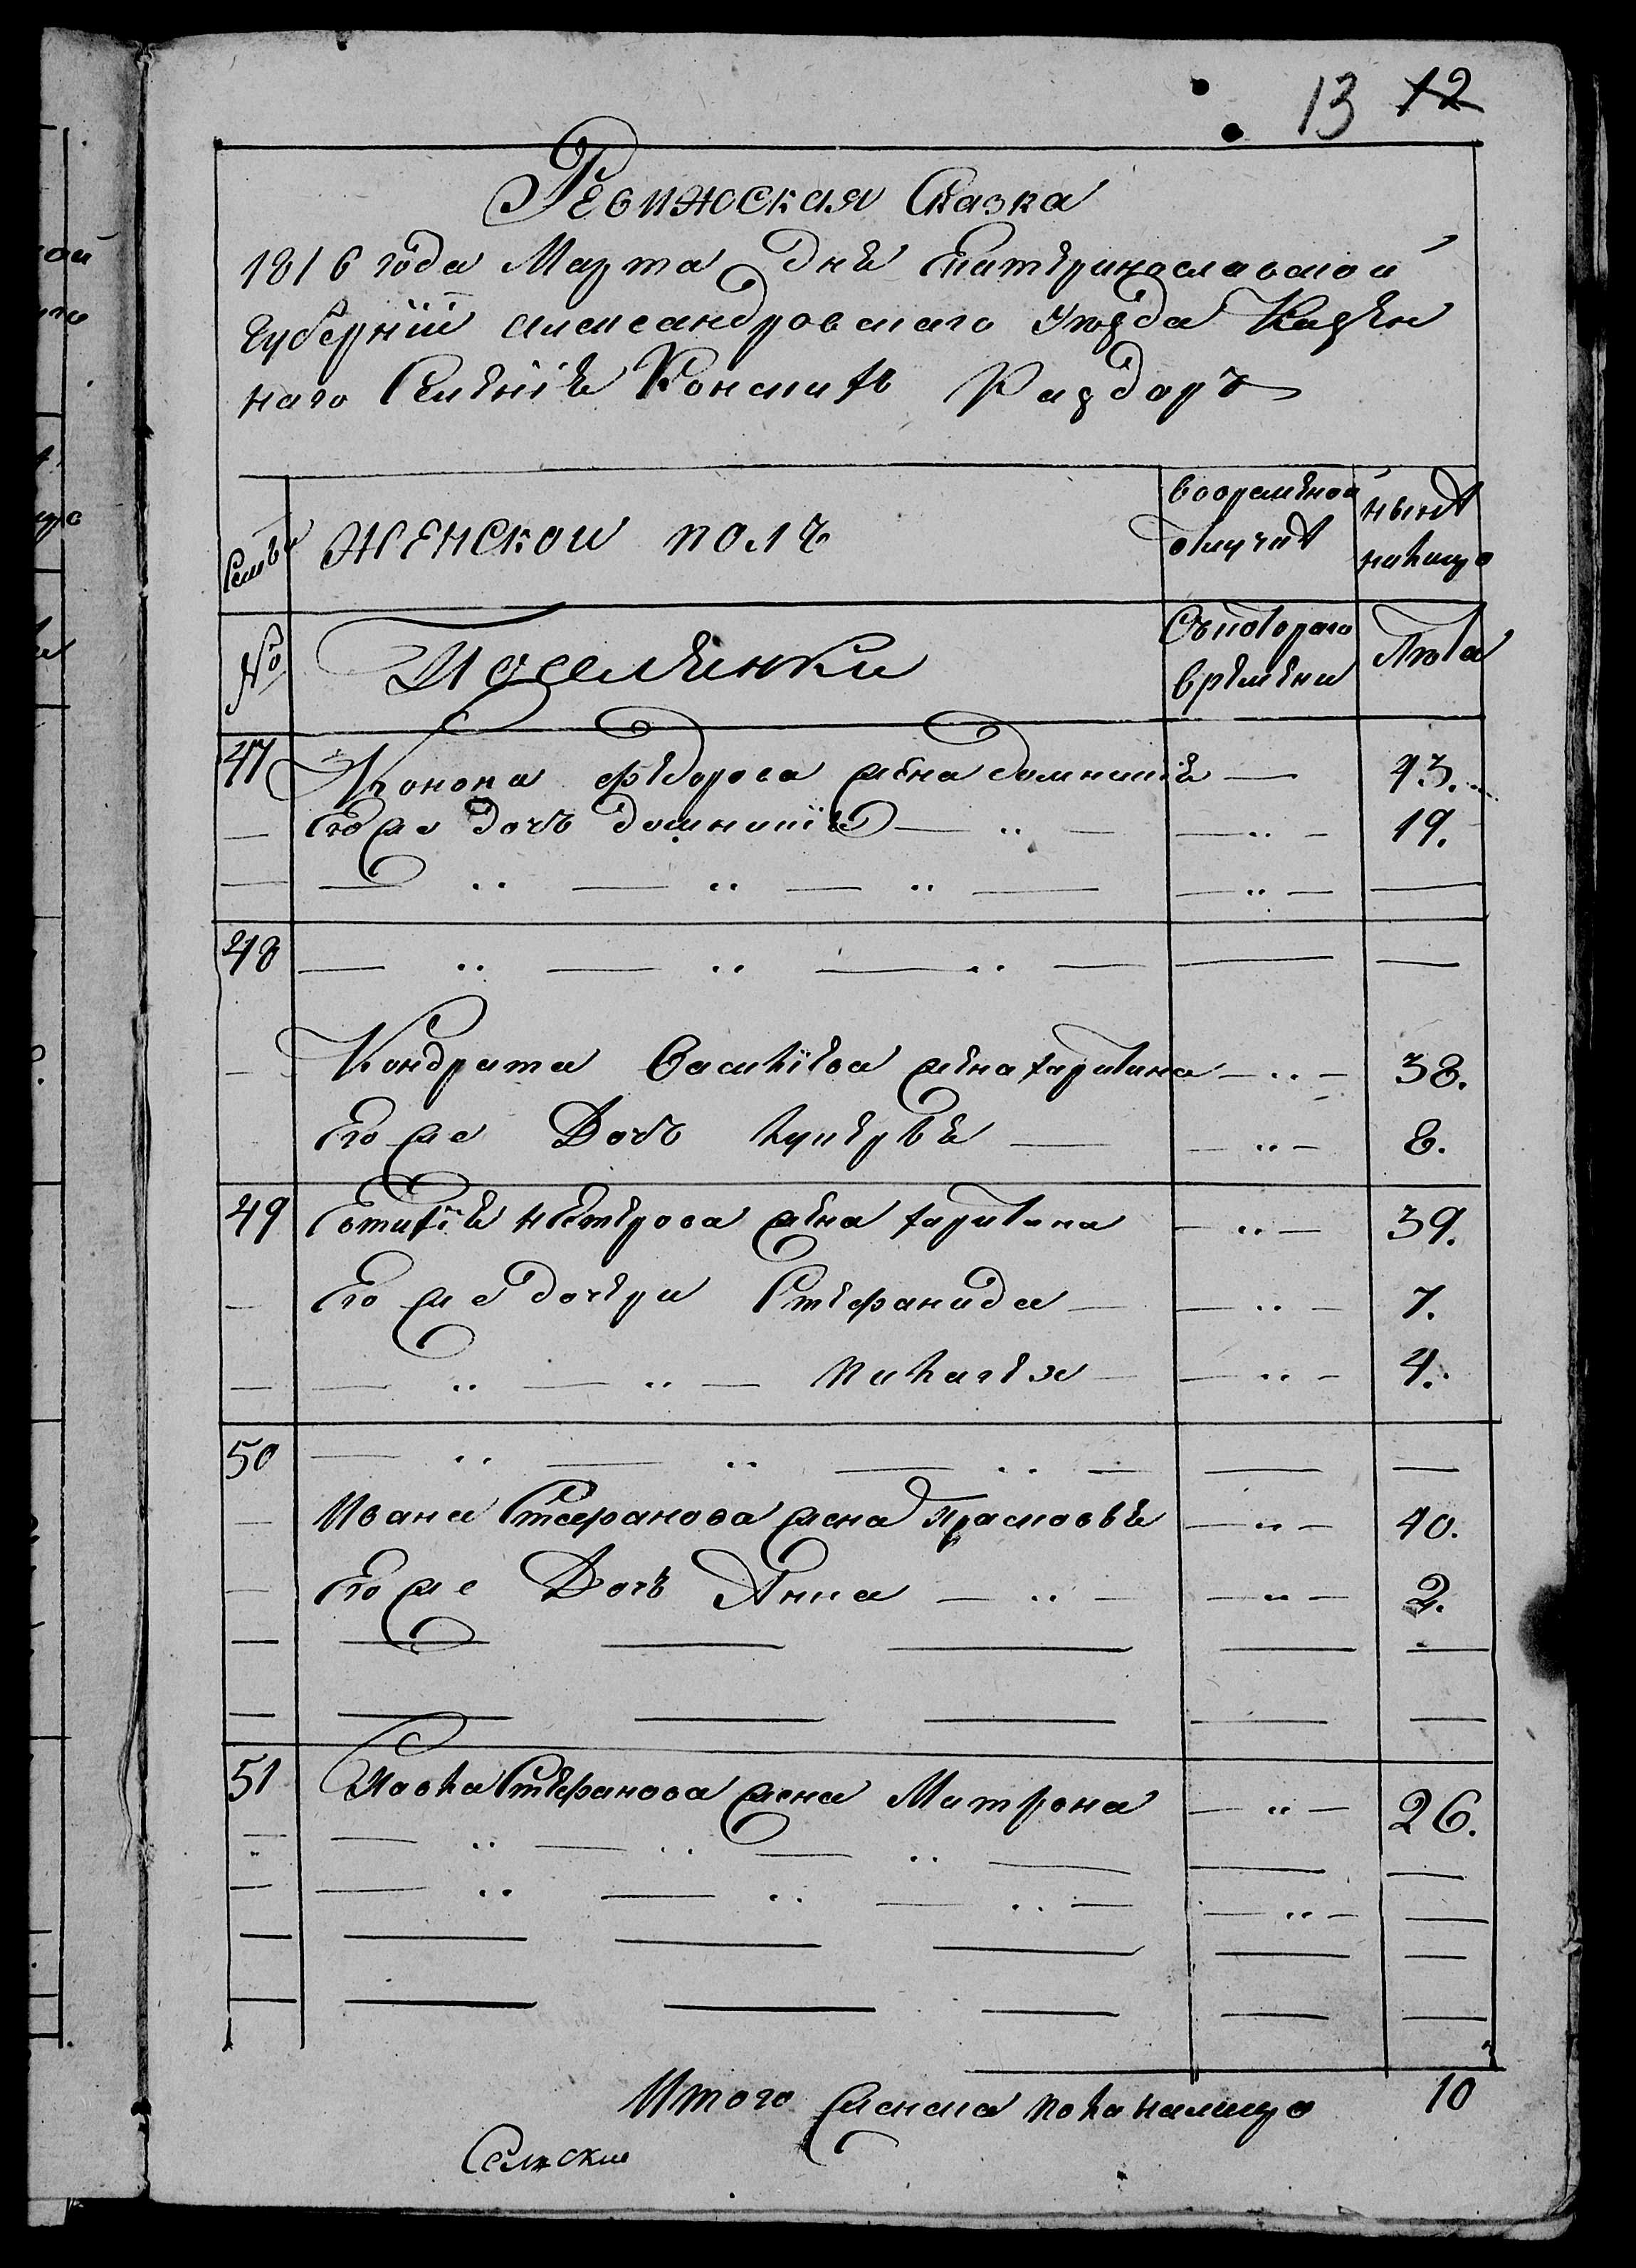 13 12
Ревижская Сказка
1816 года Марта дня Екатеринославской
губернїи александровскаго уѣзда Казен
наго Селенїя Конскихъ Раздоръ
Семьи
женской полъ
вовременной отлучкѣ
нынѣ налицо
№
Поселянки
Съкоторого времени
Лѣта
47 Конона федорова жена домникия — 43.
— Его же дочь домникїя — " — — " — 19.
— — " — " — " — — " — —
48 — " — " — " — — —
— Кондрата Василїева жена харитина — " — 38.
Его же Дочь лукеръя — — " — 8.
49 Евтихїя нестерова жена харитина — " — 39.
— Его же дочери Стефанида — — " — 7.
— — " — " — — " — 4.
50 — " — " — " — — —
— Ивана Стефанова жена прасковья — " — 40.
— Его же Дочь Анна — " — — " — 2.
51 Павла Стефанова жена Матрона — " — 26.
Итого женска пола налицо 10
Селские